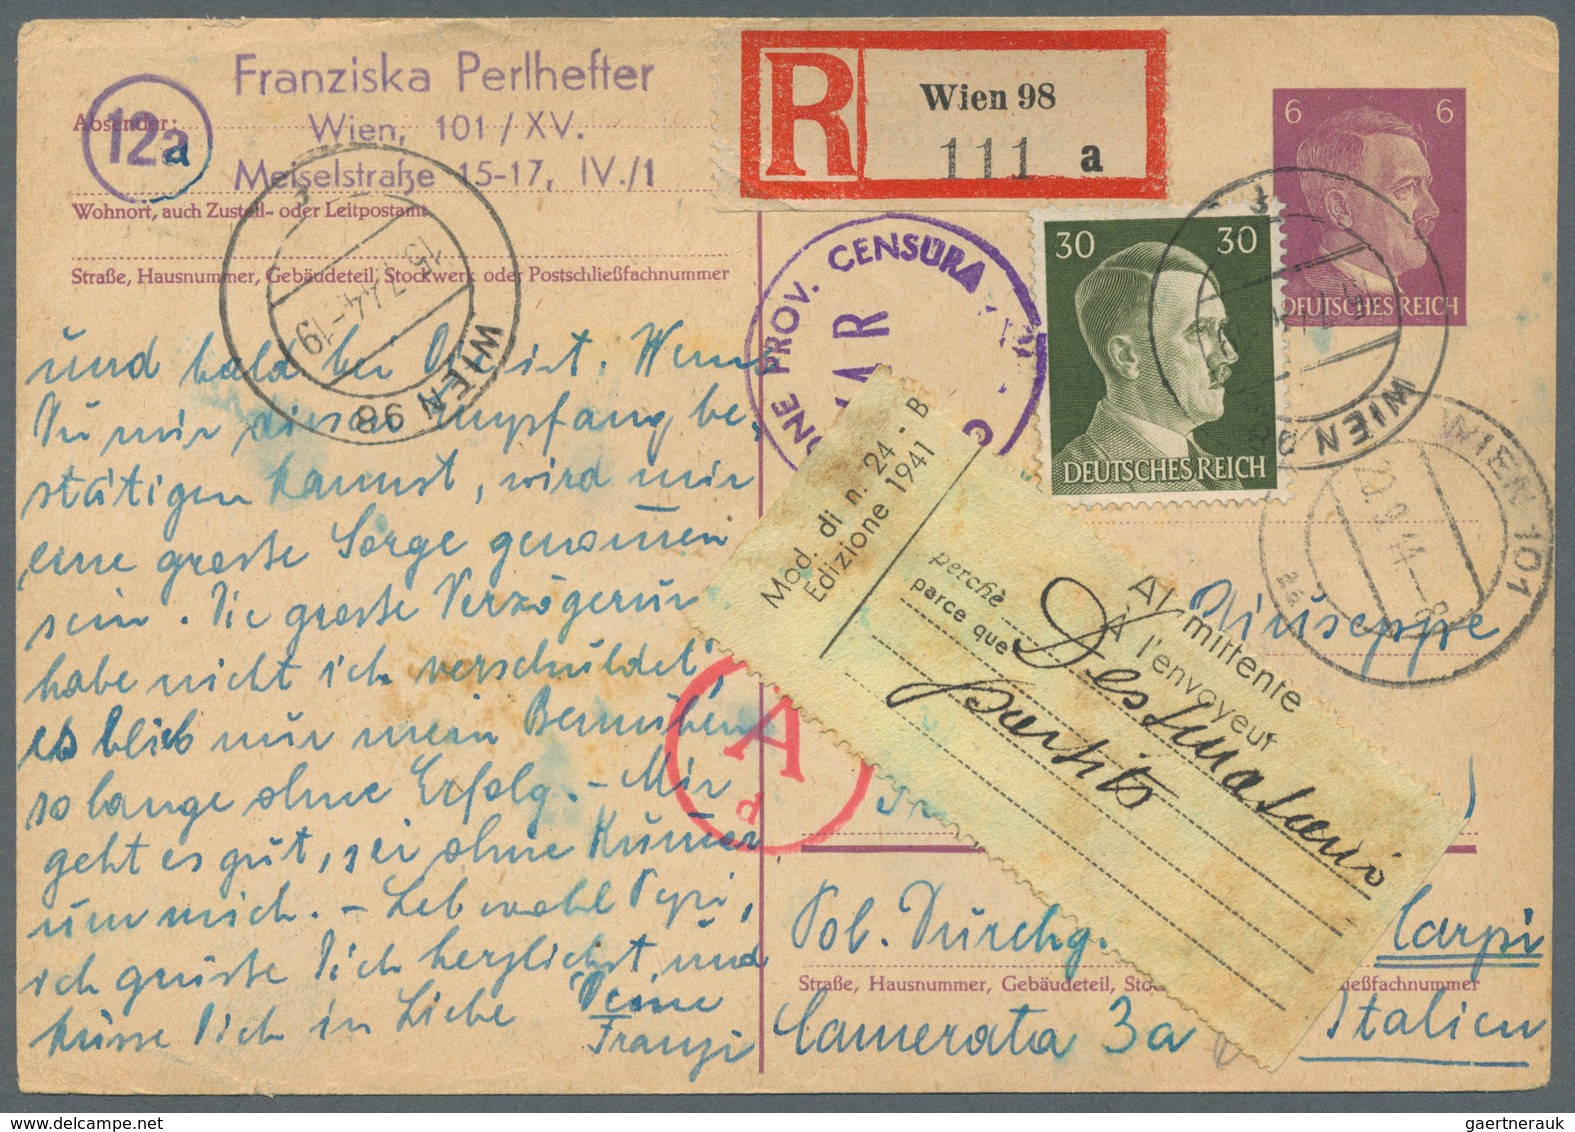 Franziska Perlhefter
Wien, 101/XV.
Meiselstraße 15-17, IV./1
12a
Absender:
Wohnort, auch Zustell- oder Leitpostamt
Straße, Hausnummer, Gebäudeteil, Stockwerk oder Postschließfachnummer
R
Wien 98
111 a
6 6
DEUTSCHES REICH
30 30
DEUTSCHES REICH
PROV. CENSURA
15.7.44-19
WIEN 98
WIEN
WIEN 101
und bald bei Dir ist. Wenn
Du mir diesen Empfang be-
stätigen kannst, wird mir
eine grosse Sorge genommen
sein. Die grosse Verzögerung
habe nicht ich verschuldet,
es blieb nur mein Bemühen
so lange ohne Erfolg. – Mir
geht es gut, sei ohne Kummer
um mich. – Leb wohl Pepi,
ich grüsse Dich herzlichst und
küsse Dich in Liebe Deine
Franzi
A
d
Mod. di n. 24 - B
Edizione 1941
Al mittente
À l'envoyeur
perchè
parce que
Destinatario
partito
Giuseppe
Pol. Durchg. Carpi
Straße, Hausnummer, Gebäudeteil, Sto ießfachnummer
Camerata 3a Italien
gaertnerauk @ delcampe.net